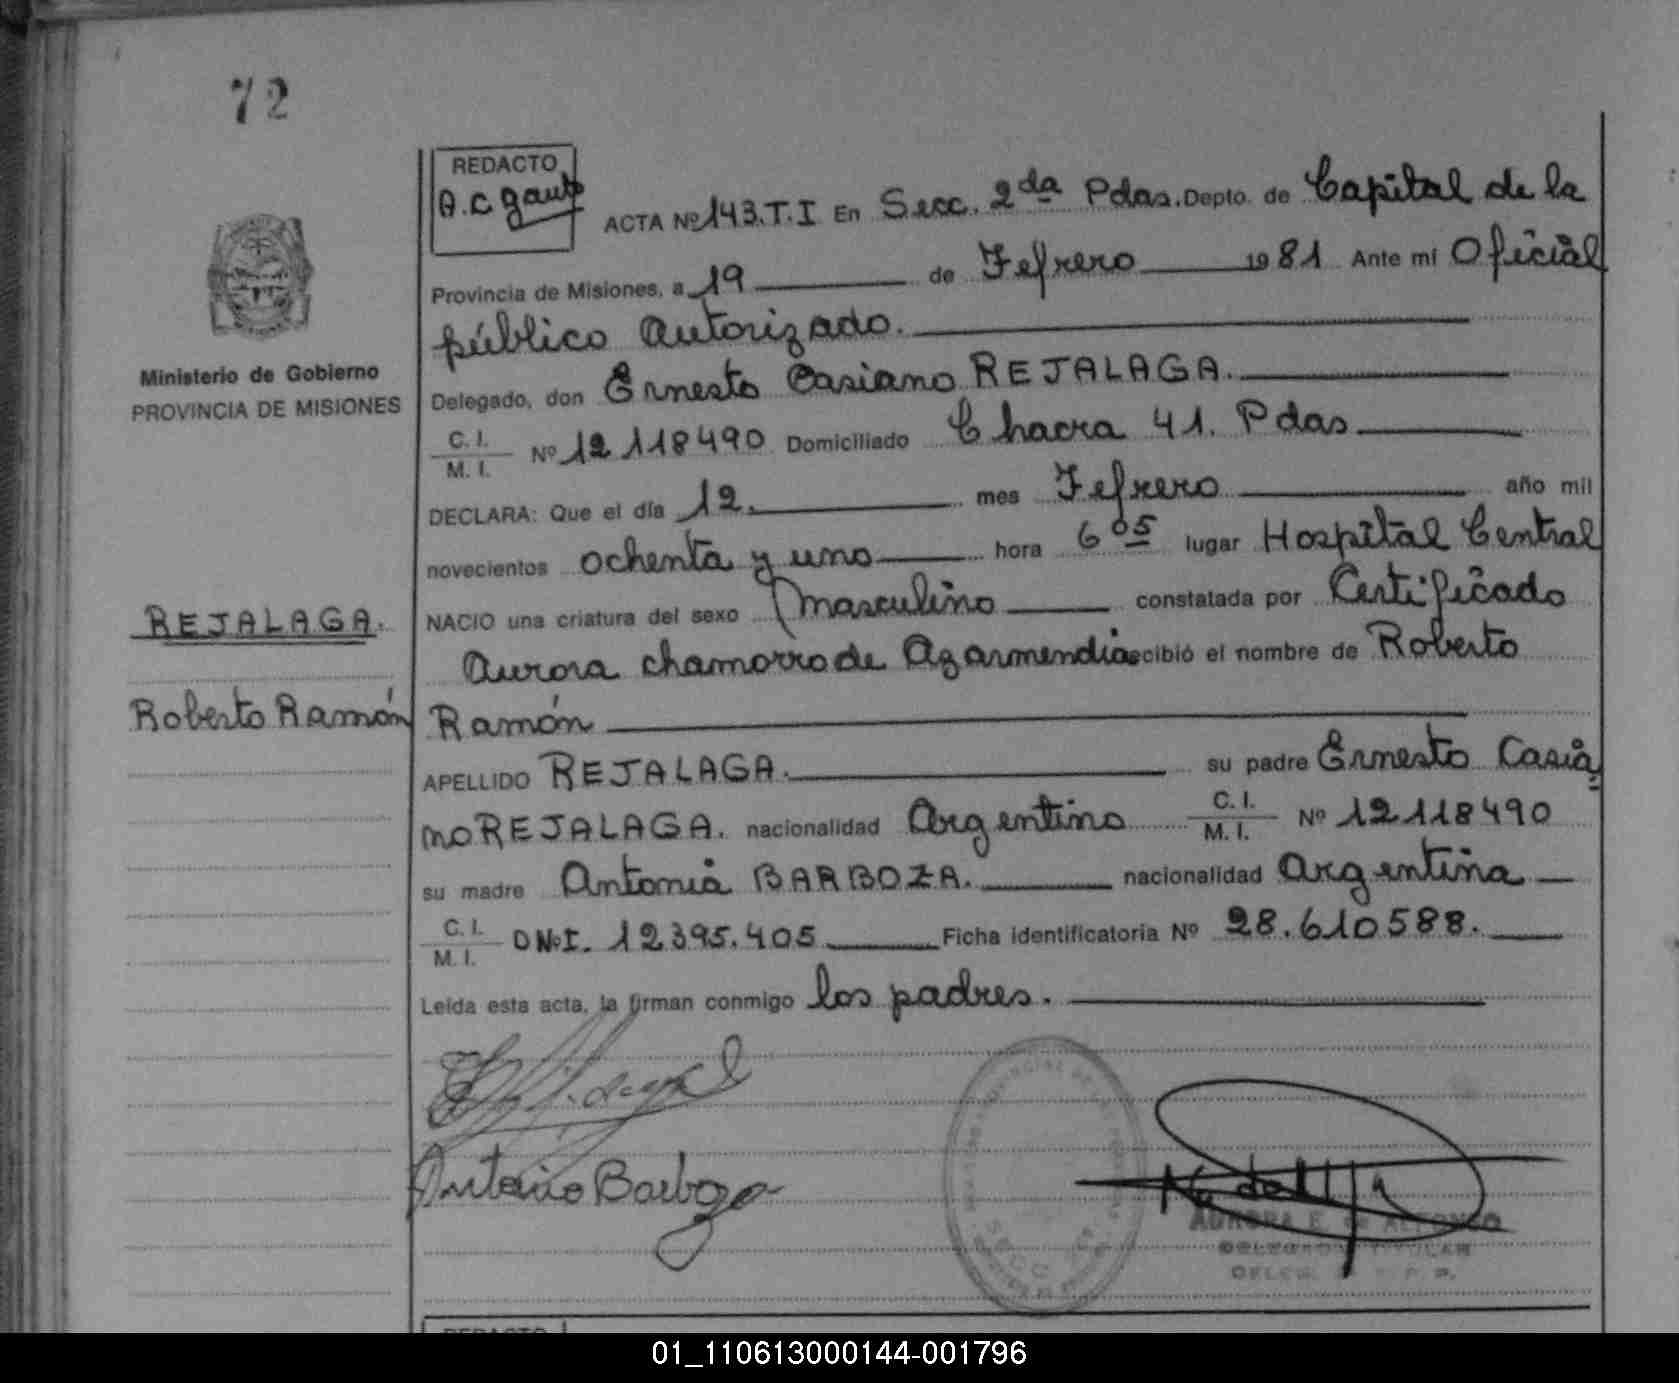 72
REDACTO
A.C gauto
ACTA Nº 143.T.I En Secc. 2da Pdas. Depto. de Capital de la
Provincia de Misiones, a 19 de Febrero 1981 Ante mí Oficial
público Autorizado.
Delegado, don Ernesto Casiano REJALAGA.
C. I.
M. I.
Nº 12 118490 Domiciliado Chacra 41. Pdas
DECLARA: Que el día 12. mes Febrero año mil
novecientos ochenta y uno hora 6 05 lugar Hospital Central
NACIO una criatura del sexo masculino constatada por Certificado
Aurora chamorro de Azarmendia recibió el nombre de Roberto
Ramón
APELLIDO REJALAGA. su padre Ernesto Casia
no REJALAGA. nacionalidad Argentino C. I. M. I. Nº 12118490
su madre Antonia BARBOZA. nacionalidad Argentina
C. I. M. I. DNI. 12395.405 Ficha identificatoria Nº 28.610588.
Leída esta acta, la firman conmigo los padres.
Ministerio de Gobierno
PROVINCIA DE MISIONES
REJALAGA.
Roberto Ramón
Antonia Barboza
AURORA E. de ALFONSO
DELEGADO TITULAR
REDACTO
01_110613000144-001796